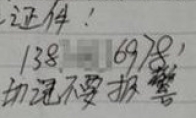 证件！
138 6978,
切记不要报警